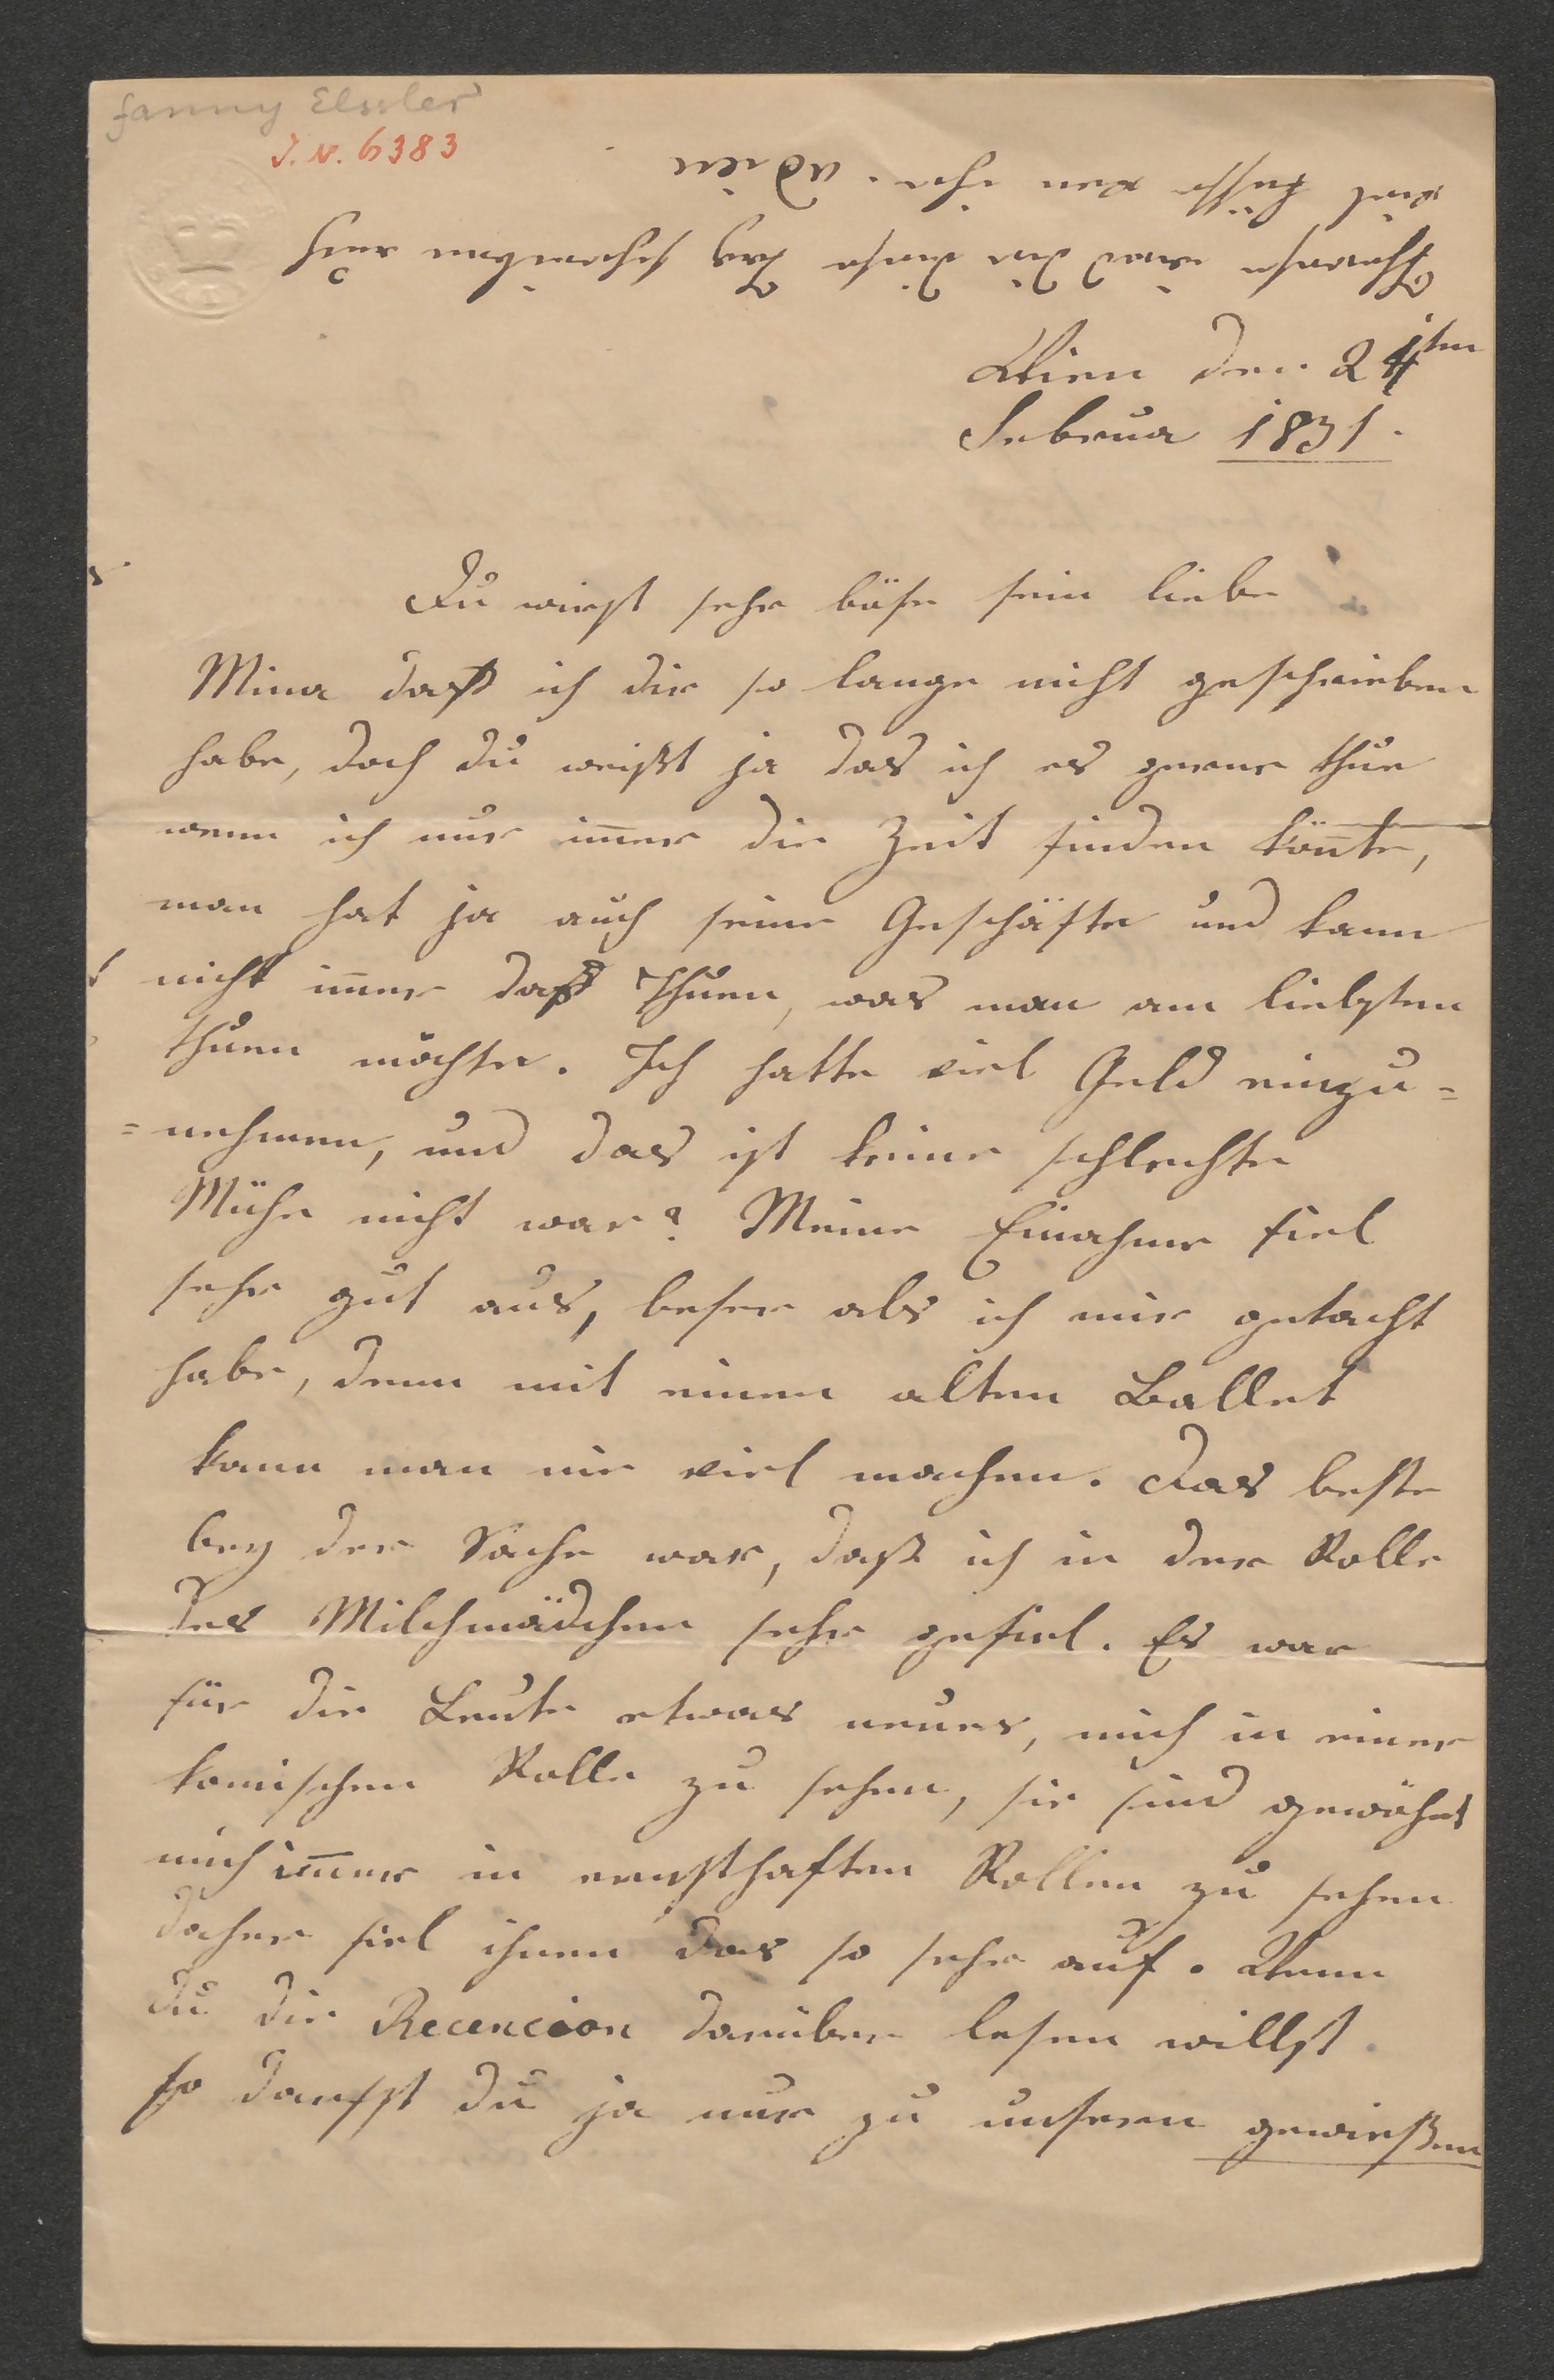 Fanny Elssler
J. N. 6383
Therese wird dir diese Tag schreiben auch
viel Küsse von ihr. Adieu
Wien den 24ten
Februa 1831.
Du wirst sehr böse sein liebe
Mina daß ich dir so lange nicht geschrieben
habe, doch du weißt ja das ich es gerne thue
wenn ich nur im̅er die Zeit finden kön̅te,
man hat ja auch seine Geschäfte und kann
nicht im̅er daß Thuen, was man am liebsten
thuen möchte. Ich hatte viel Geld einzu=
=nehmen, und das ist keine schlechte
Mühe nicht war? Meine Einahme fiel
sehr gut aus, beser als ich mir getacht
habe, denn mit einem alten Ballet
kann man nie viel machen. Das beste
bey der Sache war, daß ich in der Rolle
des Milchmädchen sehr gefiel. Es war
für die Leute etwas neues, mich in einer
komischen Rolle zu sehen, sie sind gewöhnt
mich im̅er in ernsthaften Rollen zu sehen
daher fiel ihnen das so sehr auf. Wenn
du die Recencion darüber lesen willst
so darfst du ja nur zu unseren gewießen